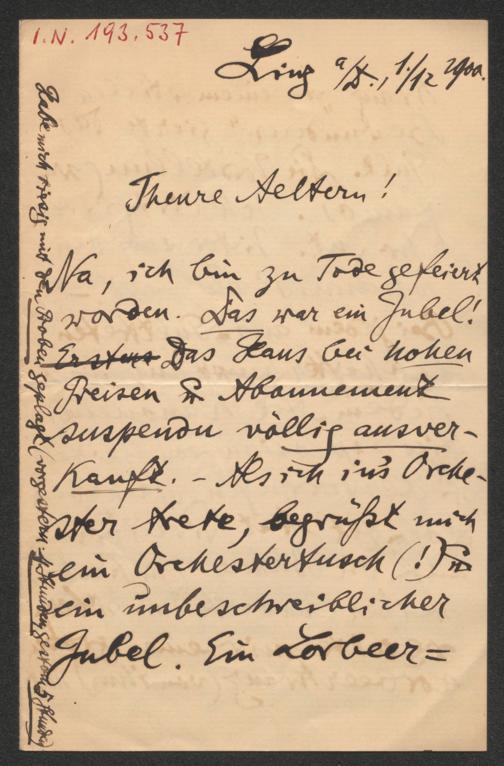 I.N. 193.537
Linz a/D., 1./12 1900.
Theure Aeltern!
Na, ich bin zu Tode gefeiert
worden. Das war ein Jubel!
Erstens Das Haus bei hohen
Preisen & Abonnement
suspendu völlig ausver-
kauft. – Als ich in's Orche-
ster trete, begrüßt mich
ein Orchestertusch (!) &
ein unbeschreiblicher
Jubel. Ein Lorbeer=
Habe mich riesig mit den Proben geplagt (vorgestern 4 Stunden gestern 5 Stunden)